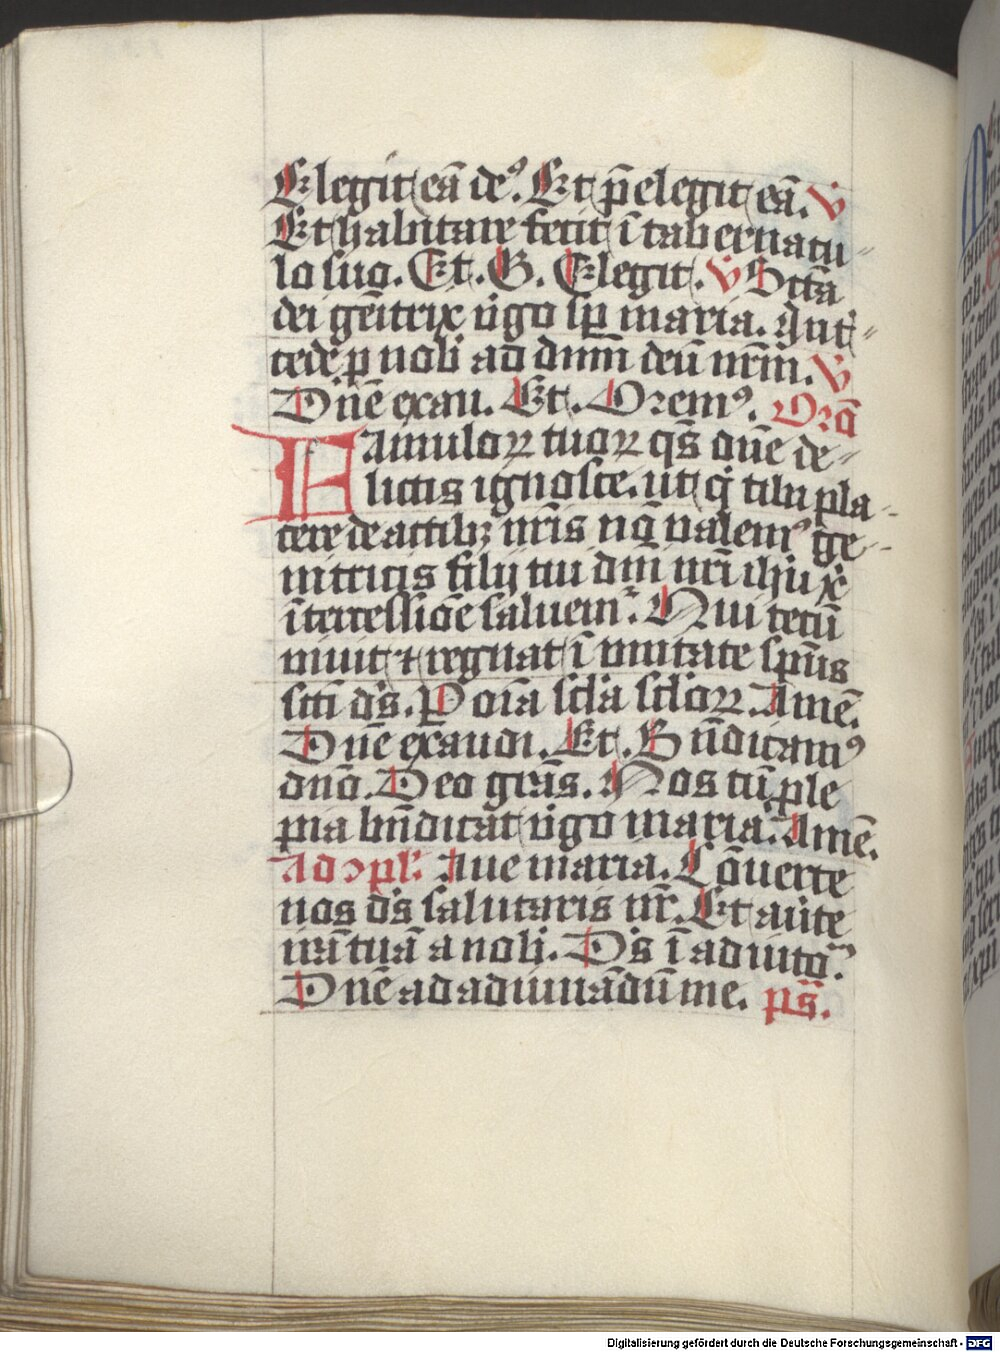 Elegit eā de⁹. Et p̄elegit eā. V
Et habitare fecit ī tabernacu⸗
lo suo. Et. G. Elegit. V Sctā
dei genitrix v̇go sp̄ maria. Int̾⸗
cede p nob̾ ad dnm̄ deū nr̄m. V
Dn̄e exau. Et. Orem⁹. Orō
Famuloꝝ tuoꝝ qs̄ dn̄e de⸗
lictis ignosce. ut q̇ tibi pla⸗
cere de actibꝫ nr̄is nō valem⁹ ge⸗
nitricis filij tui dn̄i nr̄i ih̄u xp̄i
ītercessiōe saluem̾. Qui tecū
viuit ⁊ regnat ī vnitate sp̄us
scti ds̄. P oīa scl̄a scl̄oꝝ. Amē.
Dn̄e exaudi. Et. Bn̄dicam⁹
dn̄o. Deo grās. Nos cū ple
pia bn̄dicat v̇go maria. Amē.
Ad ꝯpl̾. Aue maria. Cōuerte
nos ds̄ salutaris nr̄. Et au̇te
irā tuā a nob̾. Ds̄ ī adiuto.
Dn̄e ad adiuuādū me. ps̄.
Digitalisierung gefördert durch die Deutsche Forschungsgemeinschaft - DFG